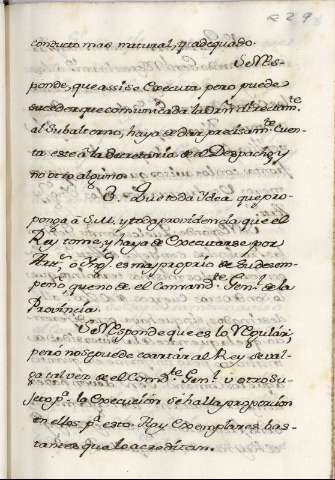 229
conducto mas natural, y adequado.
Se Res-
ponde, que assi se executa pero puede
suceder que comunicada la Orn. directam.te
al Subalterno, haya de dar precisam.te Cuen-
ta este á la Secretaría de el Despacho, y
no otro alguno.
8. Que toda Idea que pro-
ponga á S.M. y toda providencia que el
Rey tome, y haya de executarse por
Art.a ó Yng.s es mas proprio de su desem-
peño, que no de el Comand.te Gen.l de la
Provincia.
Se Responde que es lo Regular,
pero no se puede coartár al Rey se val-
ga tal vez de el Com.te Gen.l ú otro Su-
jeto p.a la execucion se halla proporcion
en ellos p.a esto. Hay Exemplares bas-
tantes que lo acreditan.